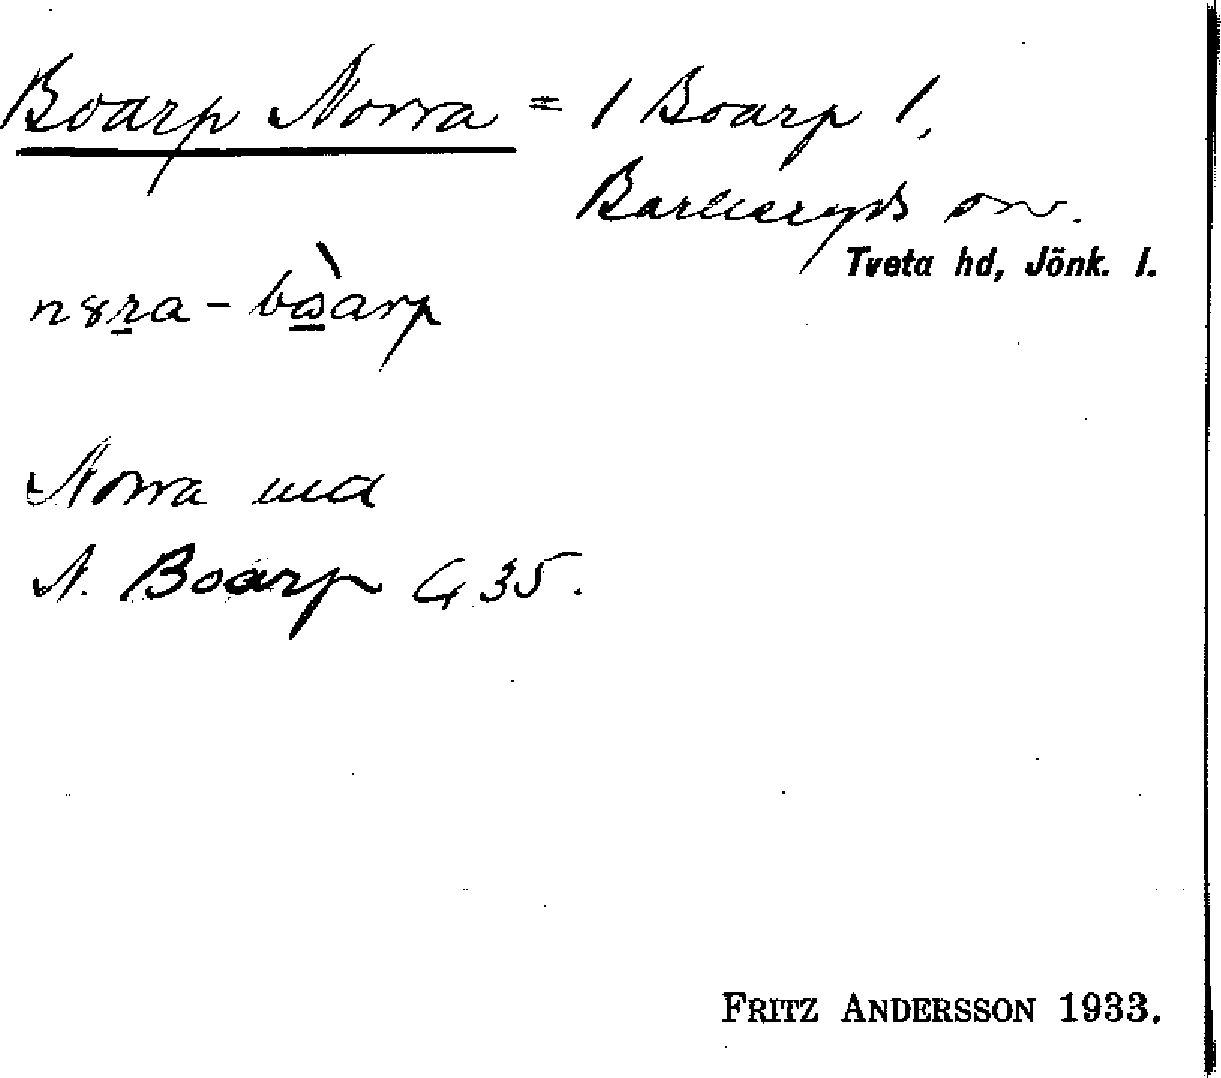 Boarp Norra = / Boarp /,
Barkeryds sn.
Tveta hd, Jönk. l.
Norra und
N. Boarp G 35.
FRITZ ANDERSSON 1933.